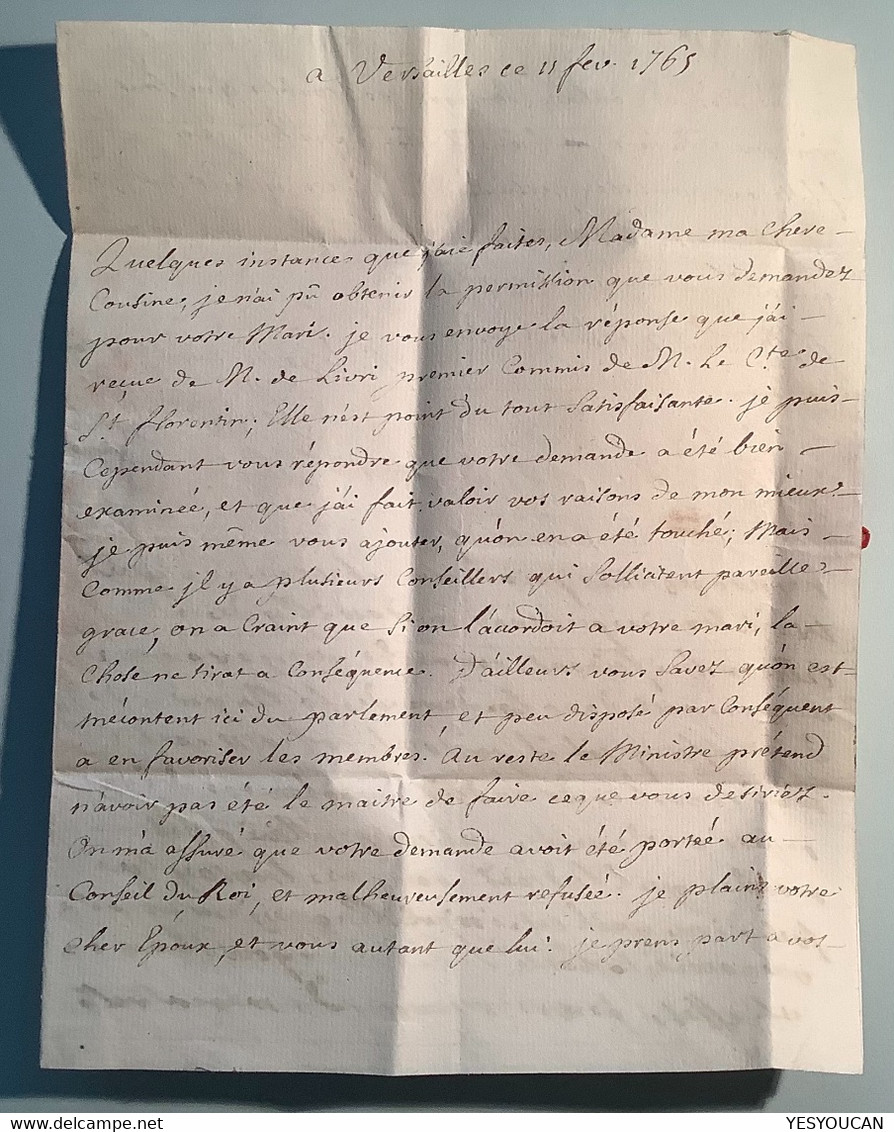 a Versailles ce 11 fev. 1765
Quelques instances que j'aie faites, Madame ma chere
Cousine, je n'ai pû obtenir la permission que vous demandez
pour votre Mari. je vous envoye la réponse que j'ai
reçue de M. de Livri premier Commis de M. Le C.te de
S.t florentin; Elle n'est point du tout Satisfaisante. je puis
Cependant vous répondre que votre demande a été bien
examinée, et que j'ai fait valoir vos raisons de mon mieux.
je puis même vous ajouter, qu'on en a été touché; Mais
Comme jl y a plusieurs Conseillers qui Sollicitent pareille
grace, on a Craint que Si on l'accordoit a votre mari, la
Chose ne tirat a Conséquence. D'ailleurs vous Savez qu'on est
mécontent ici du parlement, et peu disposé par Conséquent
a en favoriser les membres. Au reste le Ministre prétend
n'avoir pas été le maitre de faire ce que vous desiriez.
On m'a assuré que votre demande avoit été portée au
Conseil du Roi, et malheureusement refusée. je plains votre
cher Epoux, et vous autant que lui. je prens part a vos
YESYOUCAN